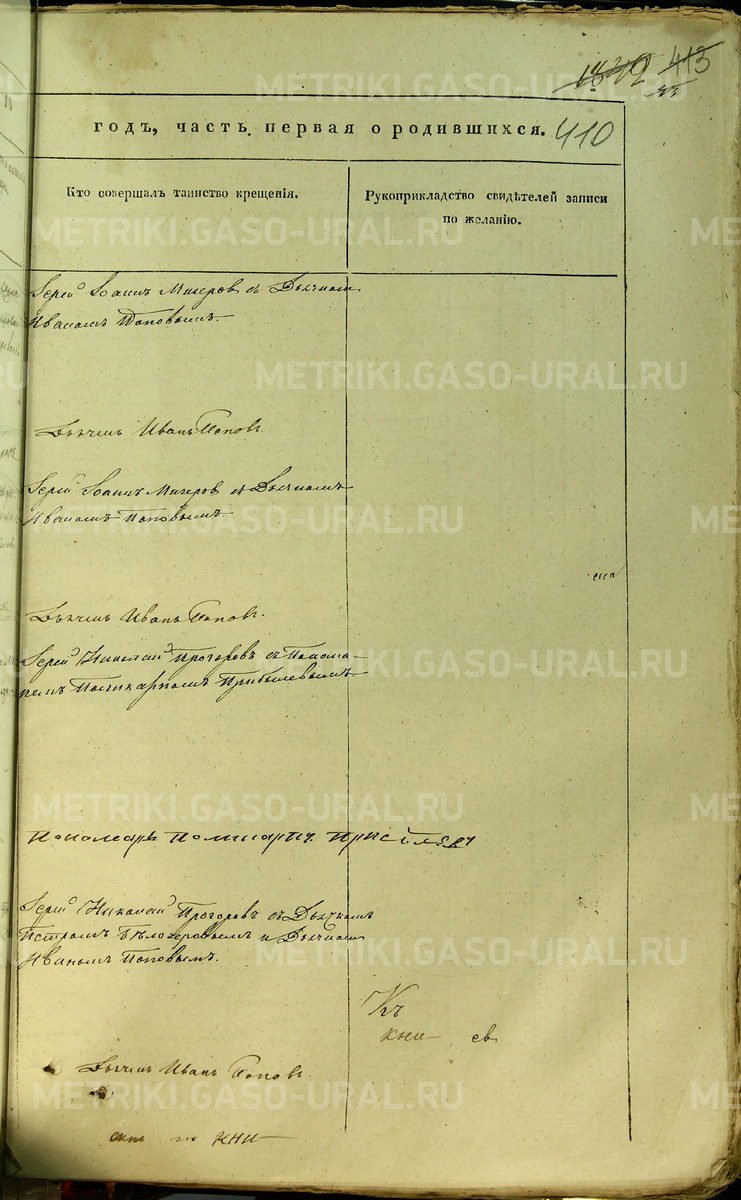 413
410
годъ, часть первая о родившихся.
Кто совершалъ таинство крещенія.
Рукоприкладство свидѣтелей записи
по желанію.
Іерей Іоаннъ Мизеровъ съ Дьячкомъ
Иваномъ Поповымъ.
Дьячекъ Иванъ Поповъ
Іерей Іоаннъ Мизеровъ съ Дьячкомъ
Иваномъ Поповымъ
Дьячекъ Иванъ Поповъ.
Іерей Николай Прозоровъ съ Понома-
ремъ Поликарпомъ Прибылевымъ
Пономарь Поликарпъ Прибылевъ
Іерей Николай Прозоровъ съ Дьячкомъ
Петромъ Бѣлозеровымъ и Дьячкомъ
Иваномъ Поповымъ.
Къ
кни св
Дьячекъ Иванъ Поповъ.
кни
METRIKI.GASO-URAL.RU